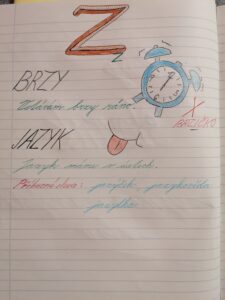 Z
z
BRZY
Vstávám brzy ráno.
X
BRZIČKO
JAZYK
Jazyk máme v ústech.
Příbuzná slova: jazýček, jazykověda
jazylka